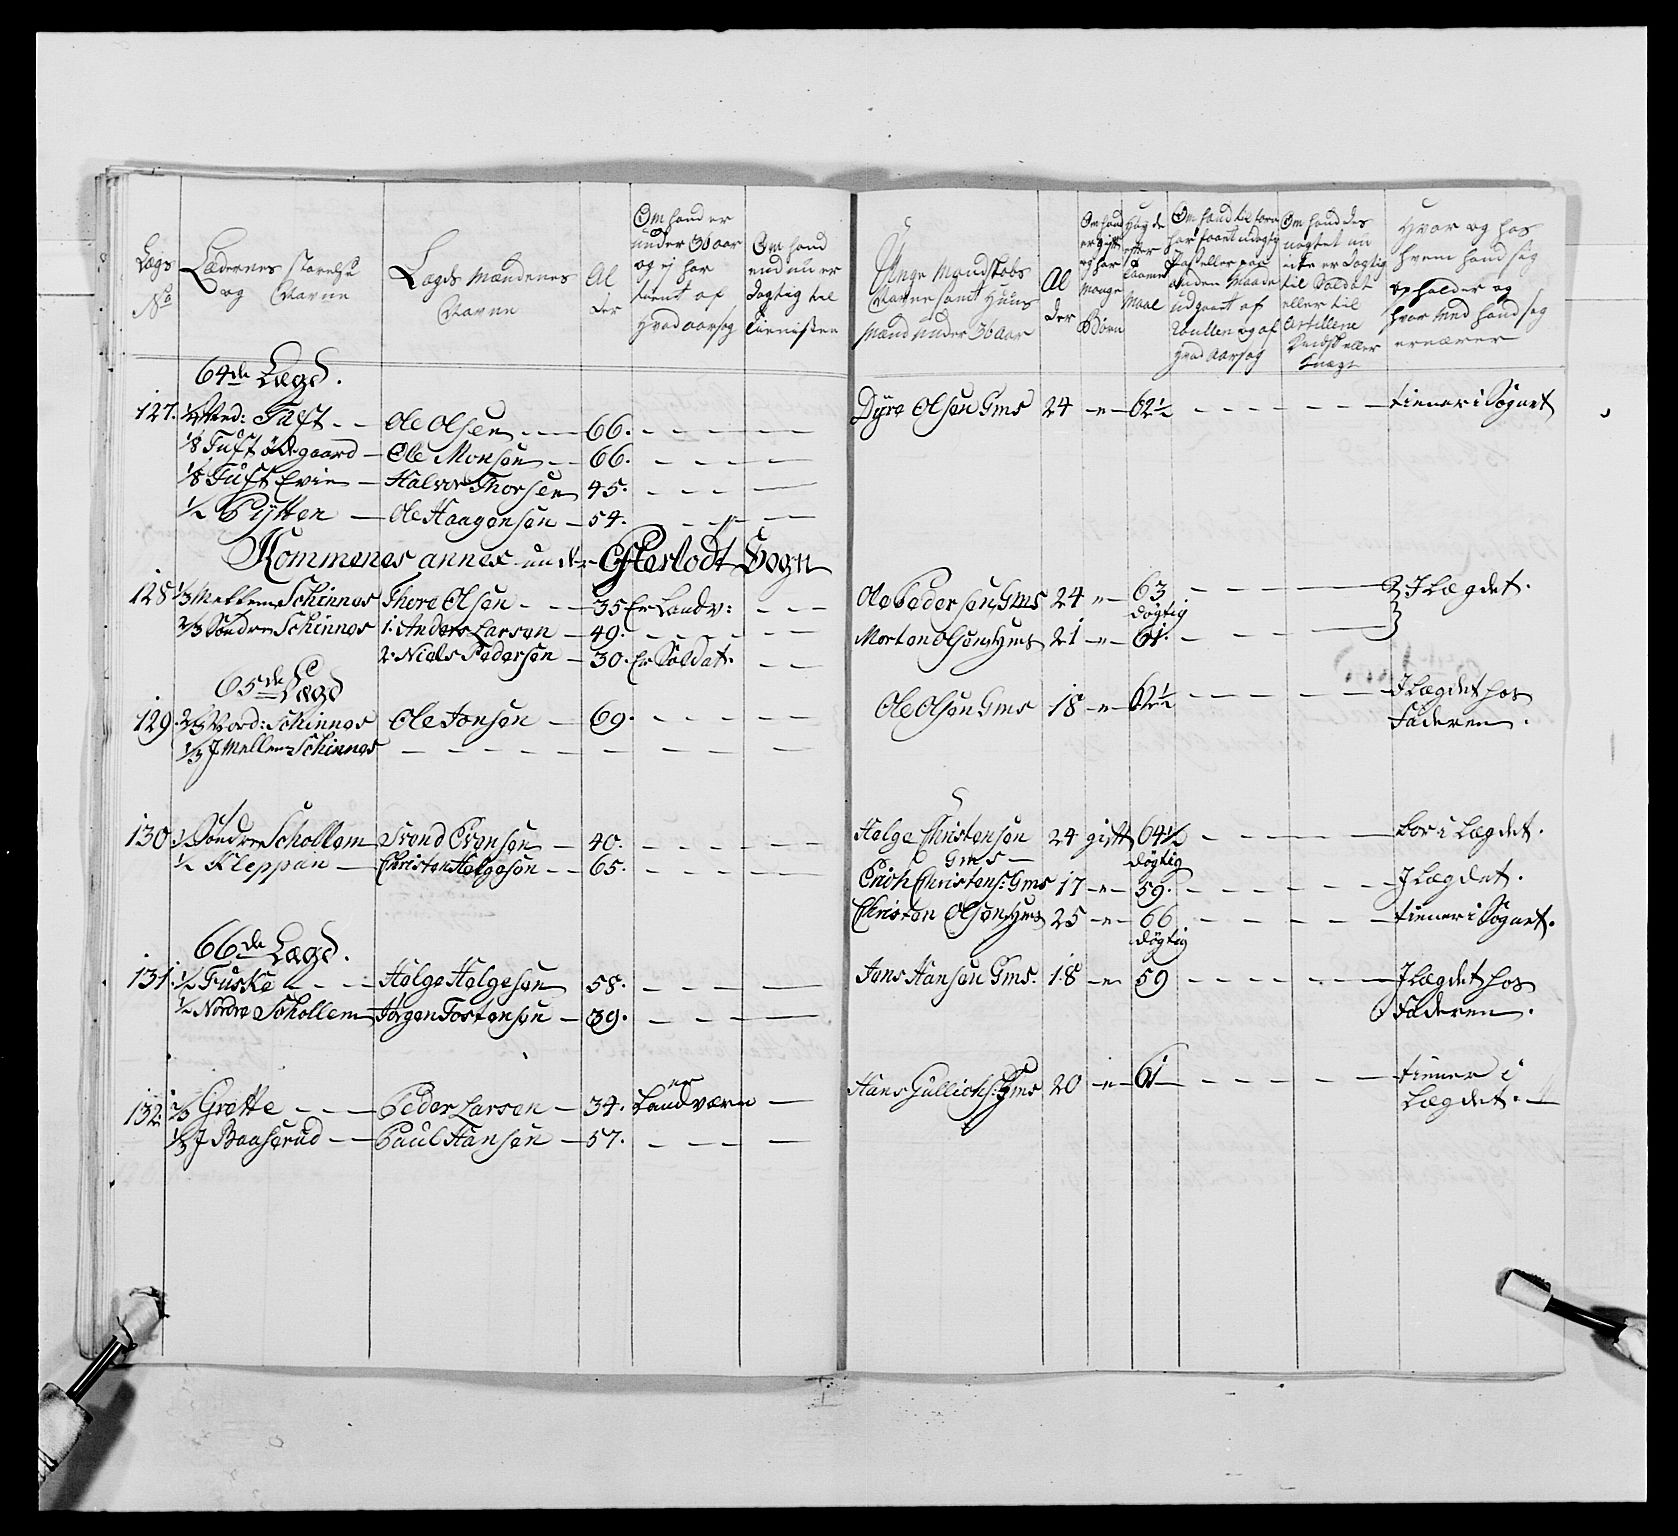 Lægs No
Lædernes størrelse og Navne
Lægds Mændenes Navne
Al der
Om hand er under 36 aar og ej har tient af hvad aarsag
Om hand end nu er døgtig til Tienisten
Unge Mandskabs Navne samt Huus Mænd under 36 Aar
Al der
Om hand er gift og har mange Børn
Høyde efter Maal
Om hand til forn har faaet udøgtig Pas eller paa anden Maade udgaaet af Rullen og af hvad aarsag
Om hand des uagtet nu ikke er døgtig til Soldat eller til Artillerie eller Knægt
Hvor og hos hvem hand sig opholder og hvor med hand sig ernærer
64de Lægd.
127. 1/4 Ned: Tuft - - Ole Olsen - - 66. - - - - Dyre Olsen Gms 24 - 62½ - - - - tiener i Sognet
1/8 Tuft Ødegaard - Ole Monsen - - 66. - - - -
1/8 Tuft Evie - Halvor Thorsen 45. - - - -
1/2 Pytten - Ole Haagensen - 54. - - - -
Kommenes annex under Efteslodt Sogn
128 1/3 Mellem Schinnes Thore Olsen - - 35 Er Landv: - - - Ole Pedersen Gms 24 - 63 døgtig - - - - I Lægdet.
2/3 Søndre Schinnes 1. Anders Larsen - 49. - - - - Morten Olsen Hms 21 - 61. - - - -
2. Niels Pedersen - 30. Er Soldat. - -
65de Lægd
129. 2/3 Nord: Schinnes Ole Jonsen - 69. - - - - Ole Olsen Gms 18 - 62½ - - - - I Lægdet hos Faderen.
1/3 I Mellem Schinnes - - - - - -
130. 1/2 Søndre Schollem Svend Evensen - 40. - - - - Helge Christensen Gms - 24 gift 64½ døgtig - - - - boer i Lægdet.
1/2 Kleppan - Christen Helgesen - - 65. - - - - Erich Christens: Gms 17 - 59. - - - - I Lægdet.
Christen Olsen Hms 25 - 66 døgtig - - - - tiener i Sognet.
66de Lægd.
131. 1/2 Fuske - - - Helge Helgesen 58. - - - - Jens Hansen Gms. 18 - 59 - - - - I Lægdet hos Faderen.
1/2 Nordre Schollem Jørgen Tostensen - 39. - - - -
132. 2/3 Grette - - - Peder Larsen - 34. er Landværn - Hans Gullichs: Gms 20 - 61 - - - - tiener i Lægdet. -
1/3 I Baaserud - - Paul Hansen - 57. - - - -